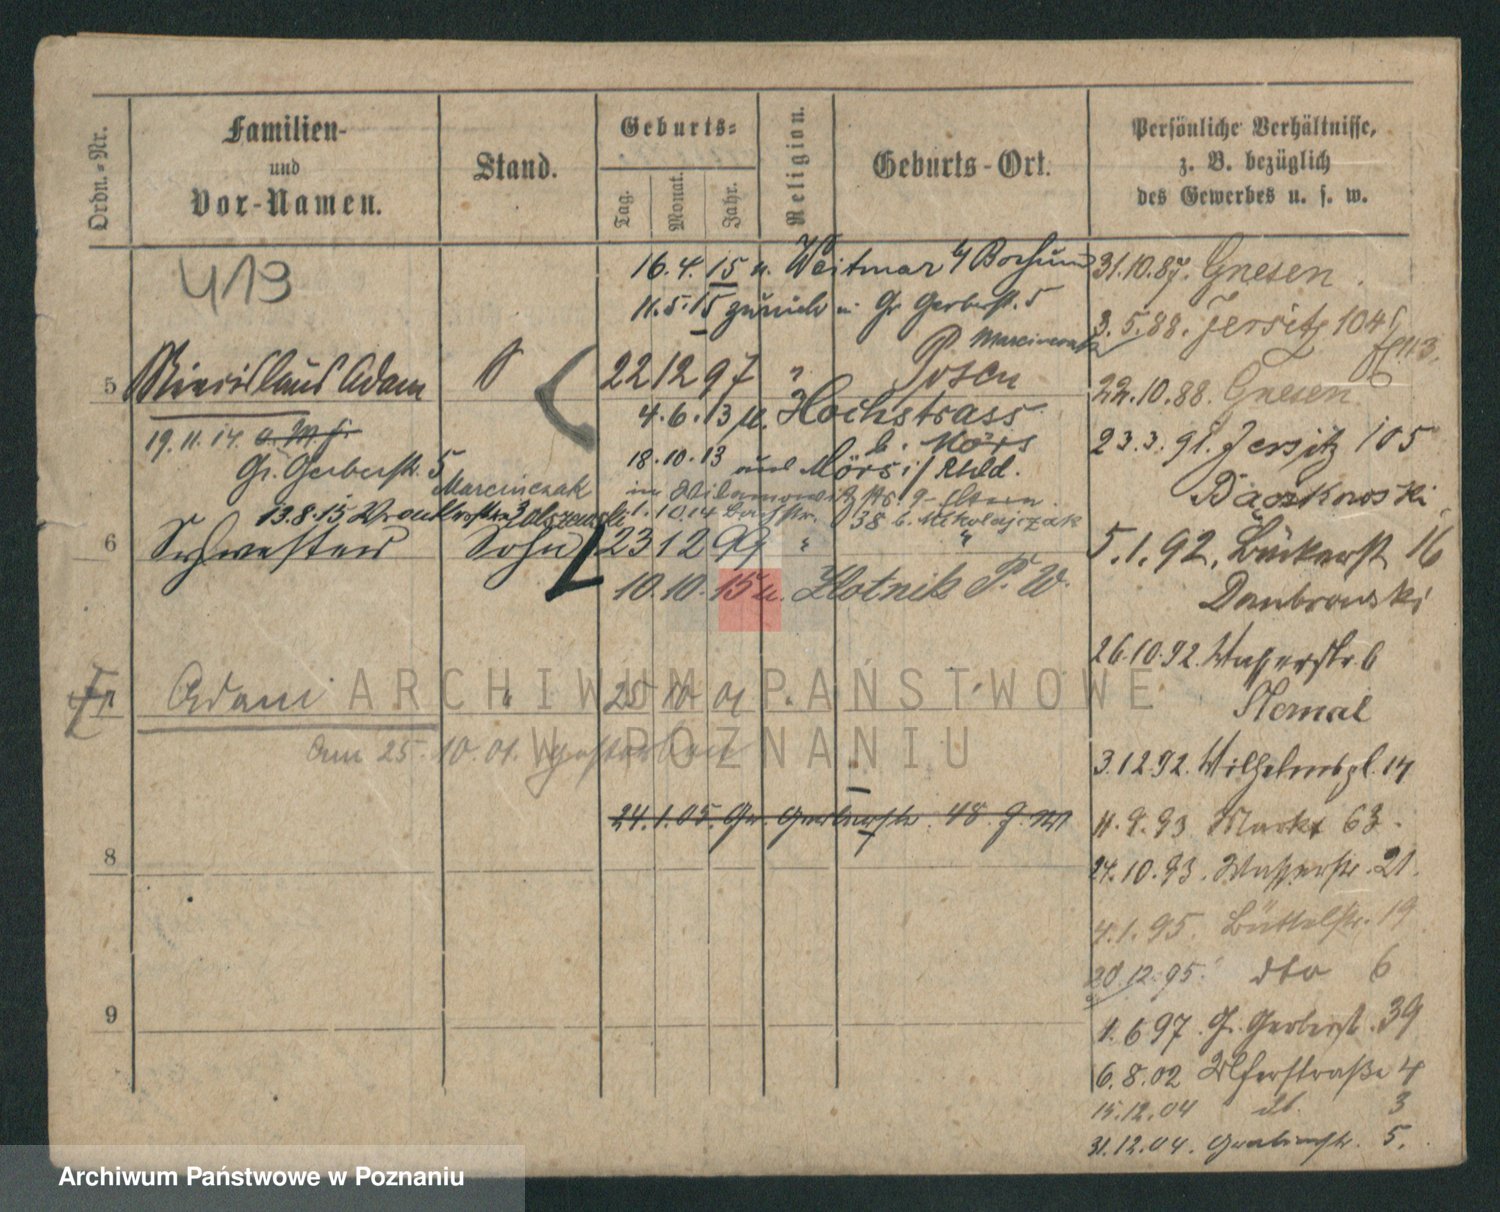 Ordn.-Nr.
Familien-
und
Vor-Namen.
Stand.
Geburts-
Tag.
Monat.
Jahr.
Religion.
Geburts-Ort.
Persönliche Verhältnisse,
z. B. bezüglich
des Gewerbes u. s. w.
413
16.4.15 n. Weitmar b/ Bochum
11.5.15 zurück n. Gr. Gerberst. 5
b. Marcinczak
5 Adam S 22 12 97 " Posen
19.11.14
4.6.13 n. Hochstrass
b. Mörs
Gr. Gerberstr. 5
Marcinczak
18.10.13 und Mörs i/ Rhld.
13.8.15
1.10.14 38 b. Mikolajczak
6 Sylvester Sohn 23 12 99 " "
10.10.15 n. Zlotnik P. W.
7 Adam " 25 10 01 "
am 25.10.01. gestorben
24.1.05. Gr. Gerberstr. 48
8
9
31.10.87. Gnesen.
3.5.88. Jersitz 104
22.10.88. Gnesen
23.3.91. Jersitz 105
Baczkowski
5.1.92. Bäckerst 16
Dombrowski
26.10.92. Wasserstr. 6
3.12.92. Wilhelmspl. 14
11.9.93 Markt 63.
24.10.93. Wasserstr. 21.
4.1.95. Büttelstr. 19
20.12.95. dto 6
1.6.97. Gr. Gerberst. 39
6.8.02 Uferstraße 4
15.12.04 do. 3
31.12.04. 5.
ARCHIWUM PAŃSTWOWE
W POZNANIU
Archiwum Państwowe w Poznaniu